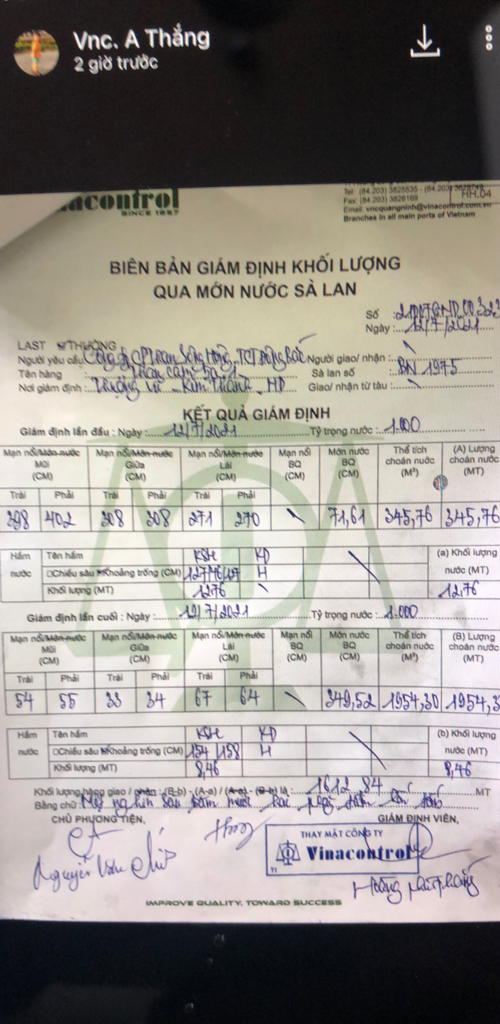 Vnc. A Thắng
2 giờ trước
acontrol
SINCE 1957
Tel: (84.203) 3825535 - (84.203)
Fax: (84.203) 3826169
Email: vncquangninh@vinacontrol.com.vn
Branches in all main ports of Vietnam
HH.04
BIÊN BẢN GIÁM ĐỊNH KHỐI LƯỢNG
QUA MỚN NƯỚC SÀ LAN
Số :
Ngày : 12/7/2021
LAST THƯỜNG
Người yêu cầu Công ty CP Than Sông Hồng - TCT Đông Bắc Người giao/ nhận :
Tên hàng : Than cám Sà lan số : BN 1975
Nơi giám định : Kim Thành - HD Giao/ nhận từ tàu :
KẾT QUẢ GIÁM ĐỊNH
Giám định lần đầu : Ngày : 12/7/2021 Tỷ trọng nước : 1.000
Mạn nổi/Mớn nước Mũi (CM) Mạn nổi/Mớn nước Giữa (CM) Mạn nổi/Mớn nước Lái (CM) Mạn nổi BQ (CM) Mớn nước BQ (CM) Thể tích choán nước (M³) (A) Lượng choán nước (MT)
Trái Phải Trái Phải Trái Phải
398 402 308 308 271 270 \ 71,61 345,76 345,76
Hầm nước Tên hầm KSH KD (a) Khối lượng nước (MT)
Chiều sâu Khoảng trống (CM) H
Khối lượng (MT) 12,76 \ 12,76
Giám định lần cuối : Ngày : 12/7/2021 Tỷ trọng nước : 1.000
Mạn nổi/Mớn nước Mũi (CM) Mạn nổi/Mớn nước Giữa (CM) Mạn nổi/Mớn nước Lái (CM) Mạn nổi BQ (CM) Mớn nước BQ (CM) Thể tích choán nước (M³) (B) Lượng choán nước (MT)
Trái Phải Trái Phải Trái Phải
54 55 33 34 67 64 \ 349,52 1954,30 1954,3
Hầm nước Tên hầm KSH KD (b) Khối lượng nước (MT)
Chiều sâu Khoảng trống (CM) 154 158 H
Khối lượng (MT) 8,46 8,46
Khối lượng hàng giao / nhận : (B-b) - (A-a) / (A-a) - (B-b) là : 1612,84 MT
Bằng chữ: Một nghìn sáu trăm mười hai phẩy tám bốn tấn
CHỦ PHƯƠNG TIỆN, GIÁM ĐỊNH VIÊN,
THAY MẶT CÔNG TY
Vinacontrol
T1
Nguyễn Văn
Hoàng
IMPROVE QUALITY, TOWARD SUCCESS